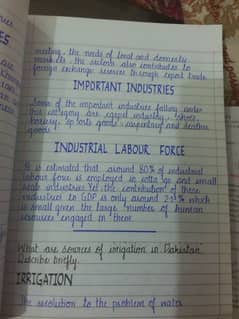 meeting the needs of local and domestic
markets. the sectors also contributes to
foreign exchange reserves through export trade.
IMPORTANT INDUSTRIES
Some of the important industries falling under
this category are carpet industry, shoes,
hosiery, Sports goods, carpentry and leather
goods.
INDUSTRIAL LABOUR FORCE
It is estimated that around 80% of industrial
labour force is employed in cottage and small
scale industries. Yet the contribution of these
industries to GDP is only around which
is small given the large number of human
resources engaged in them
What are sources of irrigation in Pakistan.
Describe briefly.
IRRIGATION
The resolution to the problem of water